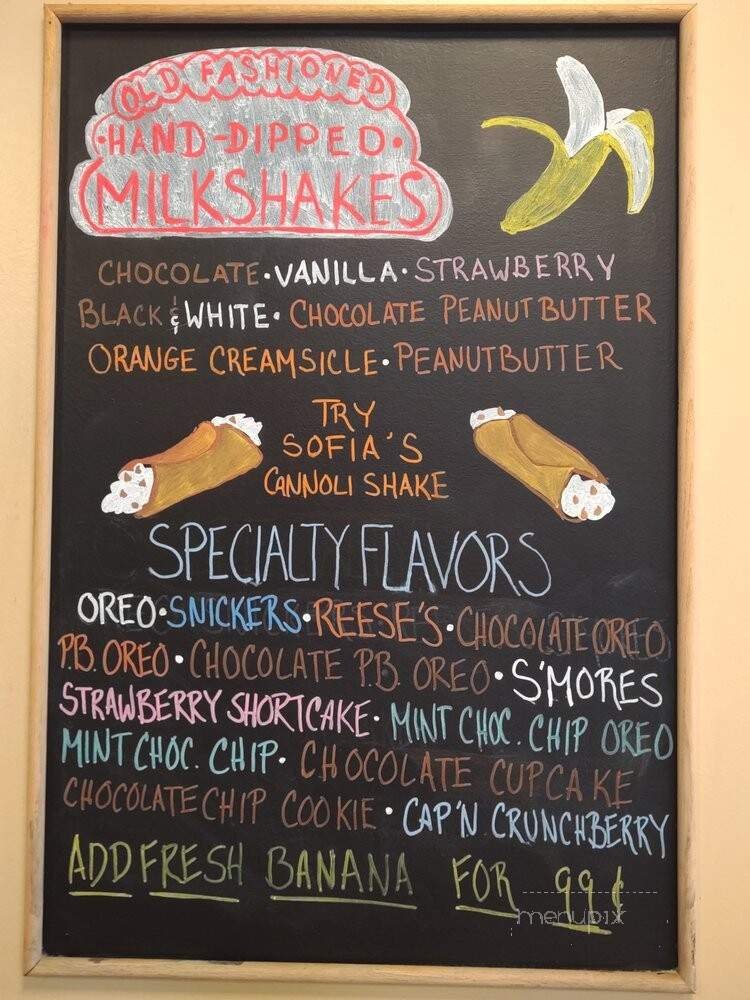 OLD FASHIONED
·HAND-DIPPED·
MILKSHAKES
CHOCOLATE·VANILLA·STRAWBERRY
BLACK & WHITE· CHOCOLATE PEANUT BUTTER
ORANGE CREAMSICLE·PEANUTBUTTER
TRY
SOFIA'S
CANNOLI SHAKE
SPECIALTY FLAVORS
OREO·SNICKERS·REESE'S·CHOCOLATE OREO
P.B. OREO·CHOCOLATE P.B. OREO·S'MORES
STRAWBERRY SHORTCAKE·MINT CHOC. CHIP OREO
MINT CHOC. CHIP·CHOCOLATE CUPCAKE
CHOCOLATE CHIP COOKIE·CAP'N CRUNCHBERRY
ADD FRESH BANANA FOR 99¢
menupix